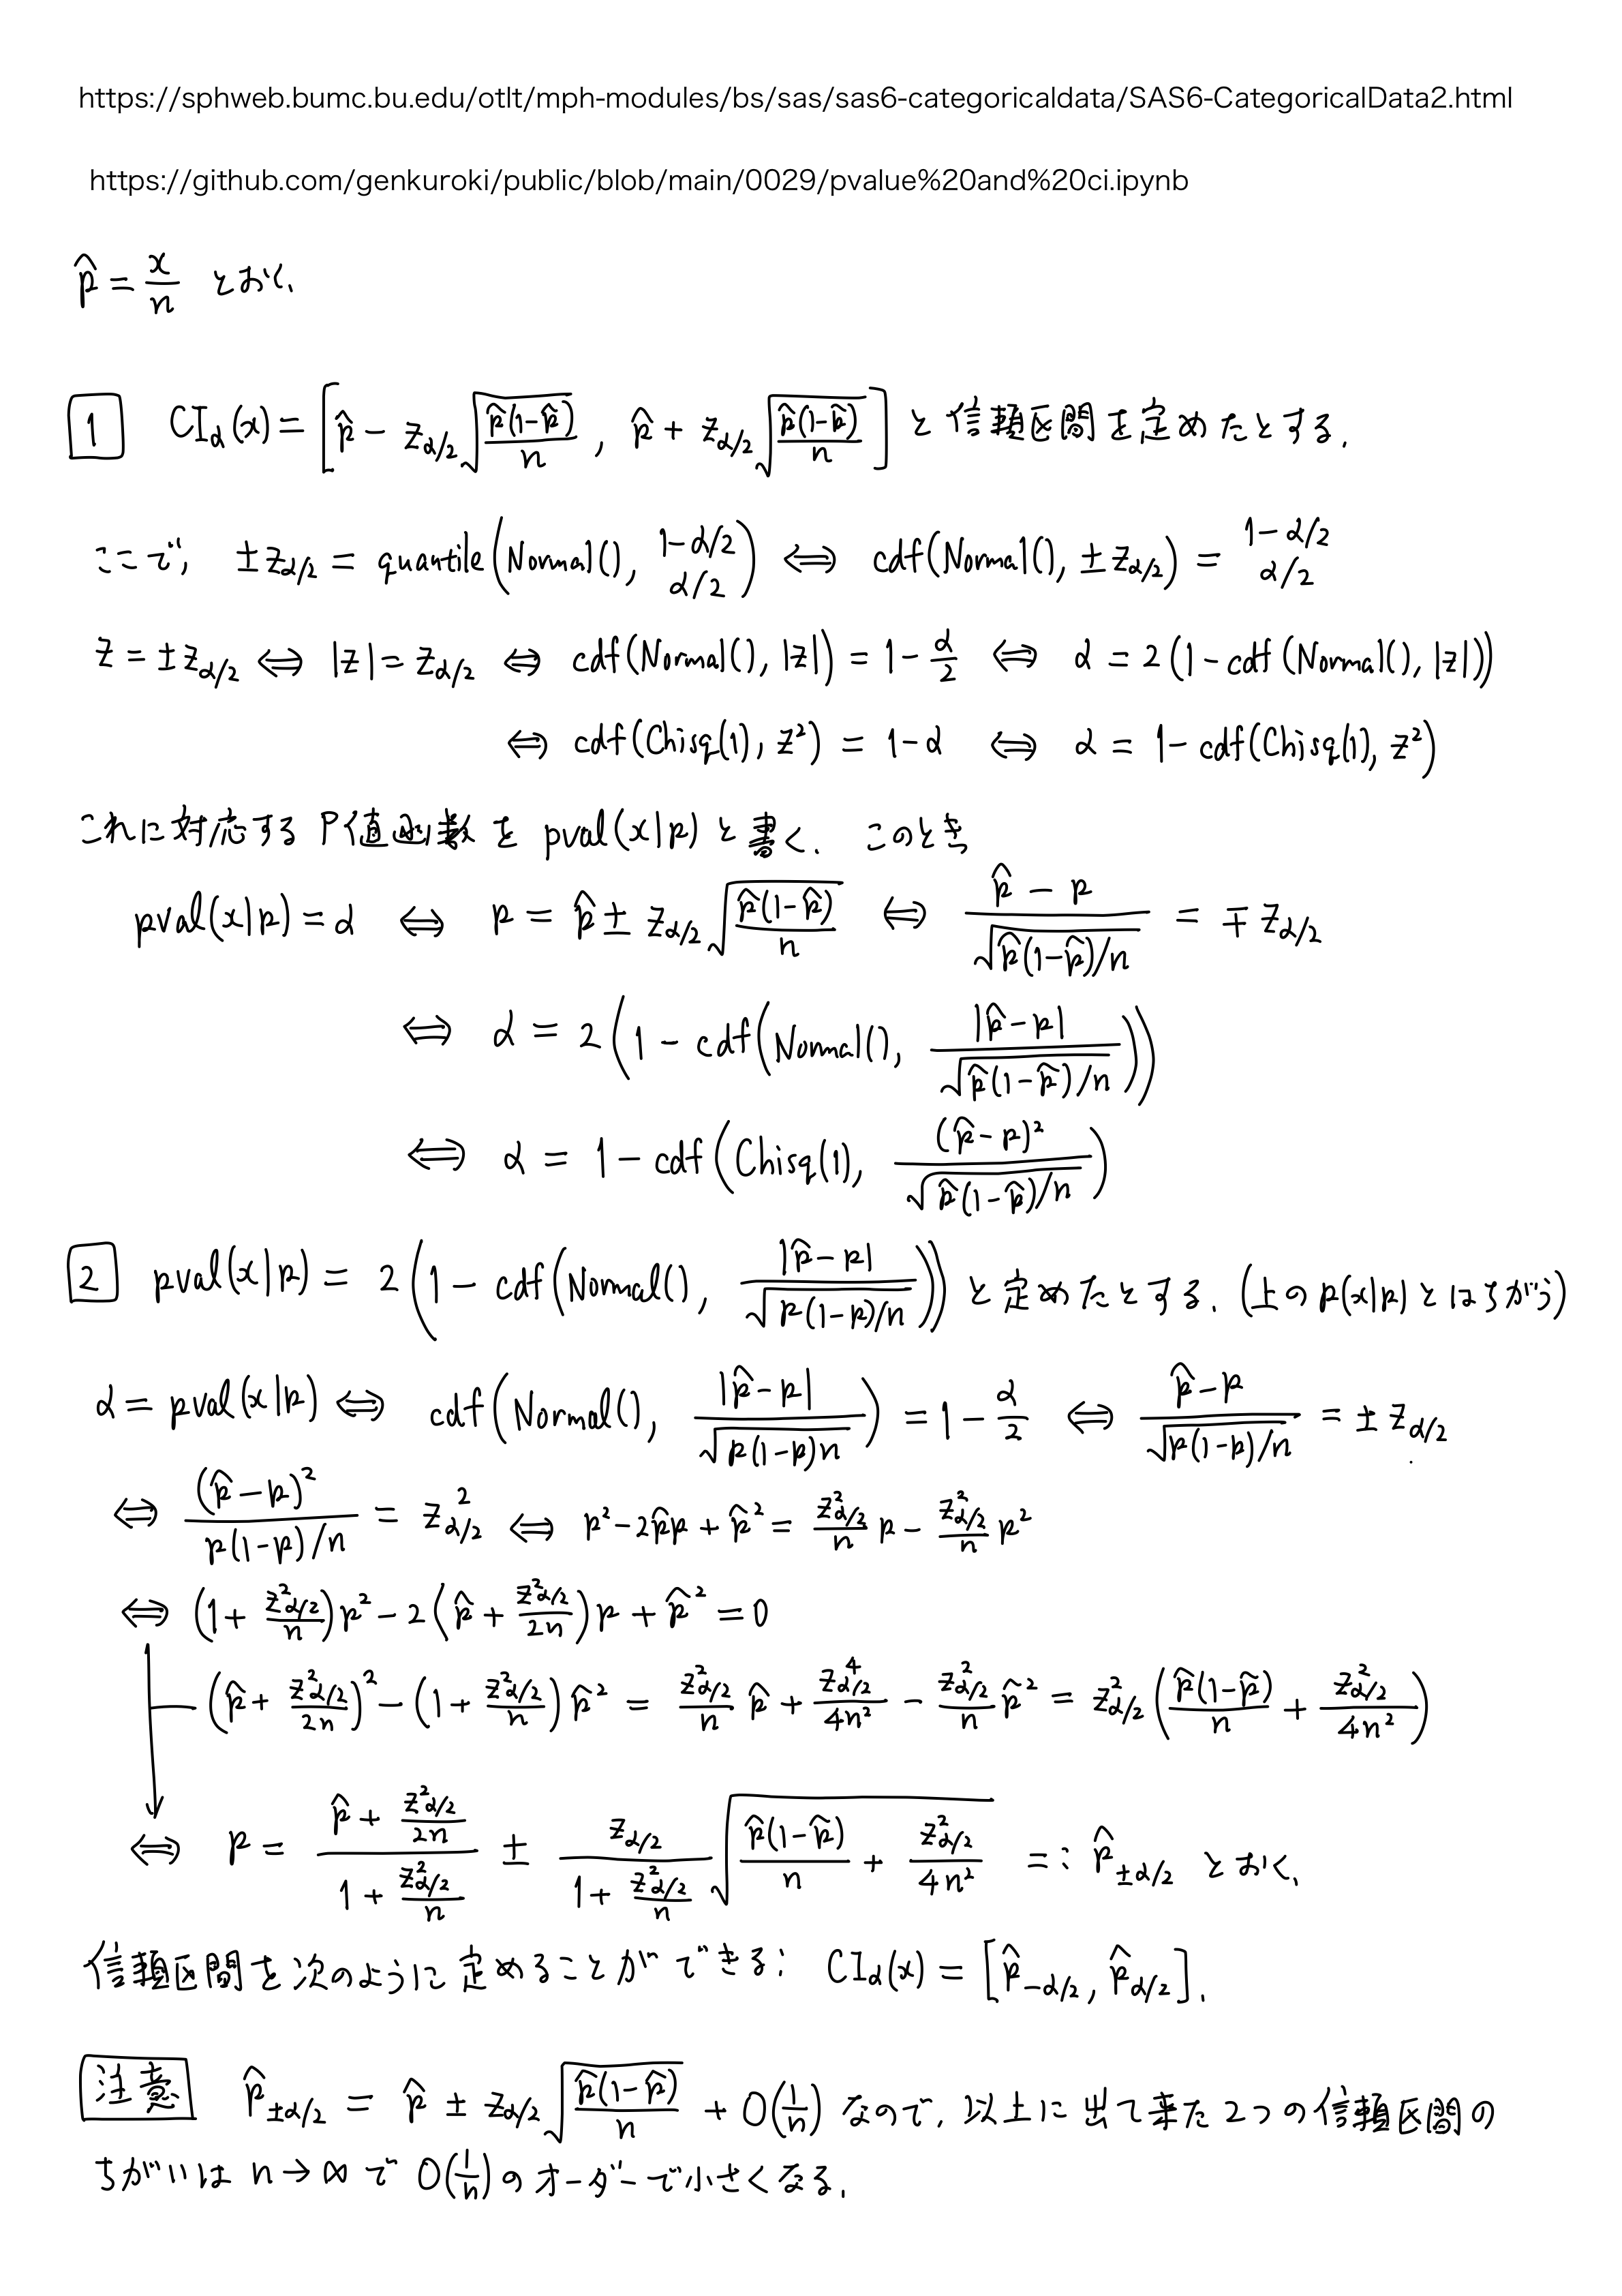 https://sphweb.bumc.bu.edu/otlt/mph-modules/bs/sas/sas6-categoricaldata/SAS6-CategoricalData2.html
https://github.com/genkuroki/public/blob/main/0029/pvalue%20and%20ci.ipynb
$\hat{p} = \frac{x}{n}$ とおく.
1 $CI_\alpha(x) = \left[\hat{p} - z_{\alpha/2}\sqrt{\frac{\hat{p}(1-\hat{p})}{n}},\ \hat{p} + z_{\alpha/2}\sqrt{\frac{\hat{p}(1-\hat{p})}{n}}\right]$ と信頼区間を定めたとする.
ここで, $\pm z_{\alpha/2} = quantile\left(Normal(), \begin{matrix}1-\alpha/2\\ \alpha/2\end{matrix}\right) \iff cdf(Normal(), \pm z_{\alpha/2}) = \begin{matrix}1-\alpha/2\\ \alpha/2\end{matrix}$
$z = \pm z_{\alpha/2} \iff |z| = z_{\alpha/2} \iff cdf(Normal(), |z|) = 1 - \frac{\alpha}{2} \iff \alpha = 2(1 - cdf(Normal(), |z|))$
$\iff cdf(Chisq(1), z^2) = 1-\alpha \iff \alpha = 1 - cdf(Chisq(1), z^2)$
これに対応するP値函数を $pval(x|p)$ と書く. このとき
$pval(x|p) = \alpha \iff p = \hat{p} \pm z_{\alpha/2}\sqrt{\frac{\hat{p}(1-\hat{p})}{n}} \iff \frac{\hat{p} - p}{\sqrt{\hat{p}(1-\hat{p})/n}} = \mp z_{\alpha/2}$
$\iff \alpha = 2\left(1 - cdf\left(Normal(), \frac{|\hat{p}-p|}{\sqrt{\hat{p}(1-\hat{p})/n}}\right)\right)$
$\iff \alpha = 1 - cdf\left(Chisq(1), \frac{(\hat{p}-p)^2}{\sqrt{\hat{p}(1-\hat{p})/n}}\right)$
2 $pval(x|p) = 2\left(1 - cdf\left(Normal(), \frac{|\hat{p}-p|}{\sqrt{p(1-p)/n}}\right)\right)$ と定めたとする. (上の $p(x|p)$ とはちがう)
$\alpha = pval(x|p) \iff cdf\left(Normal(), \frac{|\hat{p}-p|}{\sqrt{p(1-p)n}}\right) = 1 - \frac{\alpha}{2} \iff \frac{\hat{p}-p}{\sqrt{p(1-p)/n}} = \pm z_{\alpha/2}$
$\iff \frac{(\hat{p}-p)^2}{p(1-p)/n} = z_{\alpha/2}^2 \iff p^2 - 2\hat{p}p + \hat{p}^2 = \frac{z_{\alpha/2}^2}{n}p - \frac{z_{\alpha/2}^2}{n}p^2$
$\iff \left(1 + \frac{z_{\alpha/2}^2}{n}\right)p^2 - 2\left(\hat{p} + \frac{z_{\alpha/2}^2}{2n}\right)p + \hat{p}^2 = 0$
$\left(\hat{p} + \frac{z_{\alpha/2}^2}{2n}\right)^2 - \left(1 + \frac{z_{\alpha/2}^2}{n}\right)\hat{p}^2 = \frac{z_{\alpha/2}^2}{n}\hat{p} + \frac{z_{\alpha/2}^4}{4n^2} - \frac{z_{\alpha/2}^2}{n}\hat{p}^2 = z_{\alpha/2}^2\left(\frac{\hat{p}(1-\hat{p})}{n} + \frac{z_{\alpha/2}^2}{4n^2}\right)$
$\iff p = \frac{\hat{p} + \frac{z_{\alpha/2}^2}{2n}}{1 + \frac{z_{\alpha/2}^2}{n}} \pm \frac{z_{\alpha/2}}{1 + \frac{z_{\alpha/2}^2}{n}}\sqrt{\frac{\hat{p}(1-\hat{p})}{n} + \frac{z_{\alpha/2}^2}{4n^2}} =: \hat{p}_{\pm\alpha/2}$ とおく.
信頼区間を次のように定めることができる: $CI_\alpha(x) = [\hat{p}_{-\alpha/2}, \hat{p}_{\alpha/2}]$.
注意 $\hat{p}_{\pm\alpha/2} = \hat{p} \pm z_{\alpha/2}\sqrt{\frac{\hat{p}(1-\hat{p})}{n}} + O\left(\frac{1}{n}\right)$ なので, 以上に出て来た2つの信頼区間の
ちがいは $n \to \infty$ で $O(\frac{1}{n})$ のオーダーで小さくなる.